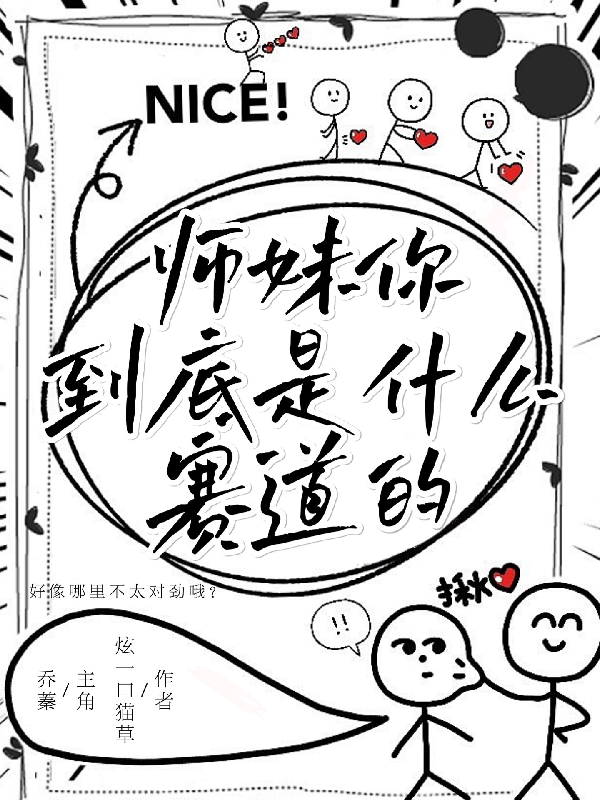 NICE!
师妹你
到底是什么
赛道的
好像哪里不太对劲哦?
!!
揪
作者/炫一口猫草
主角/乔蓁